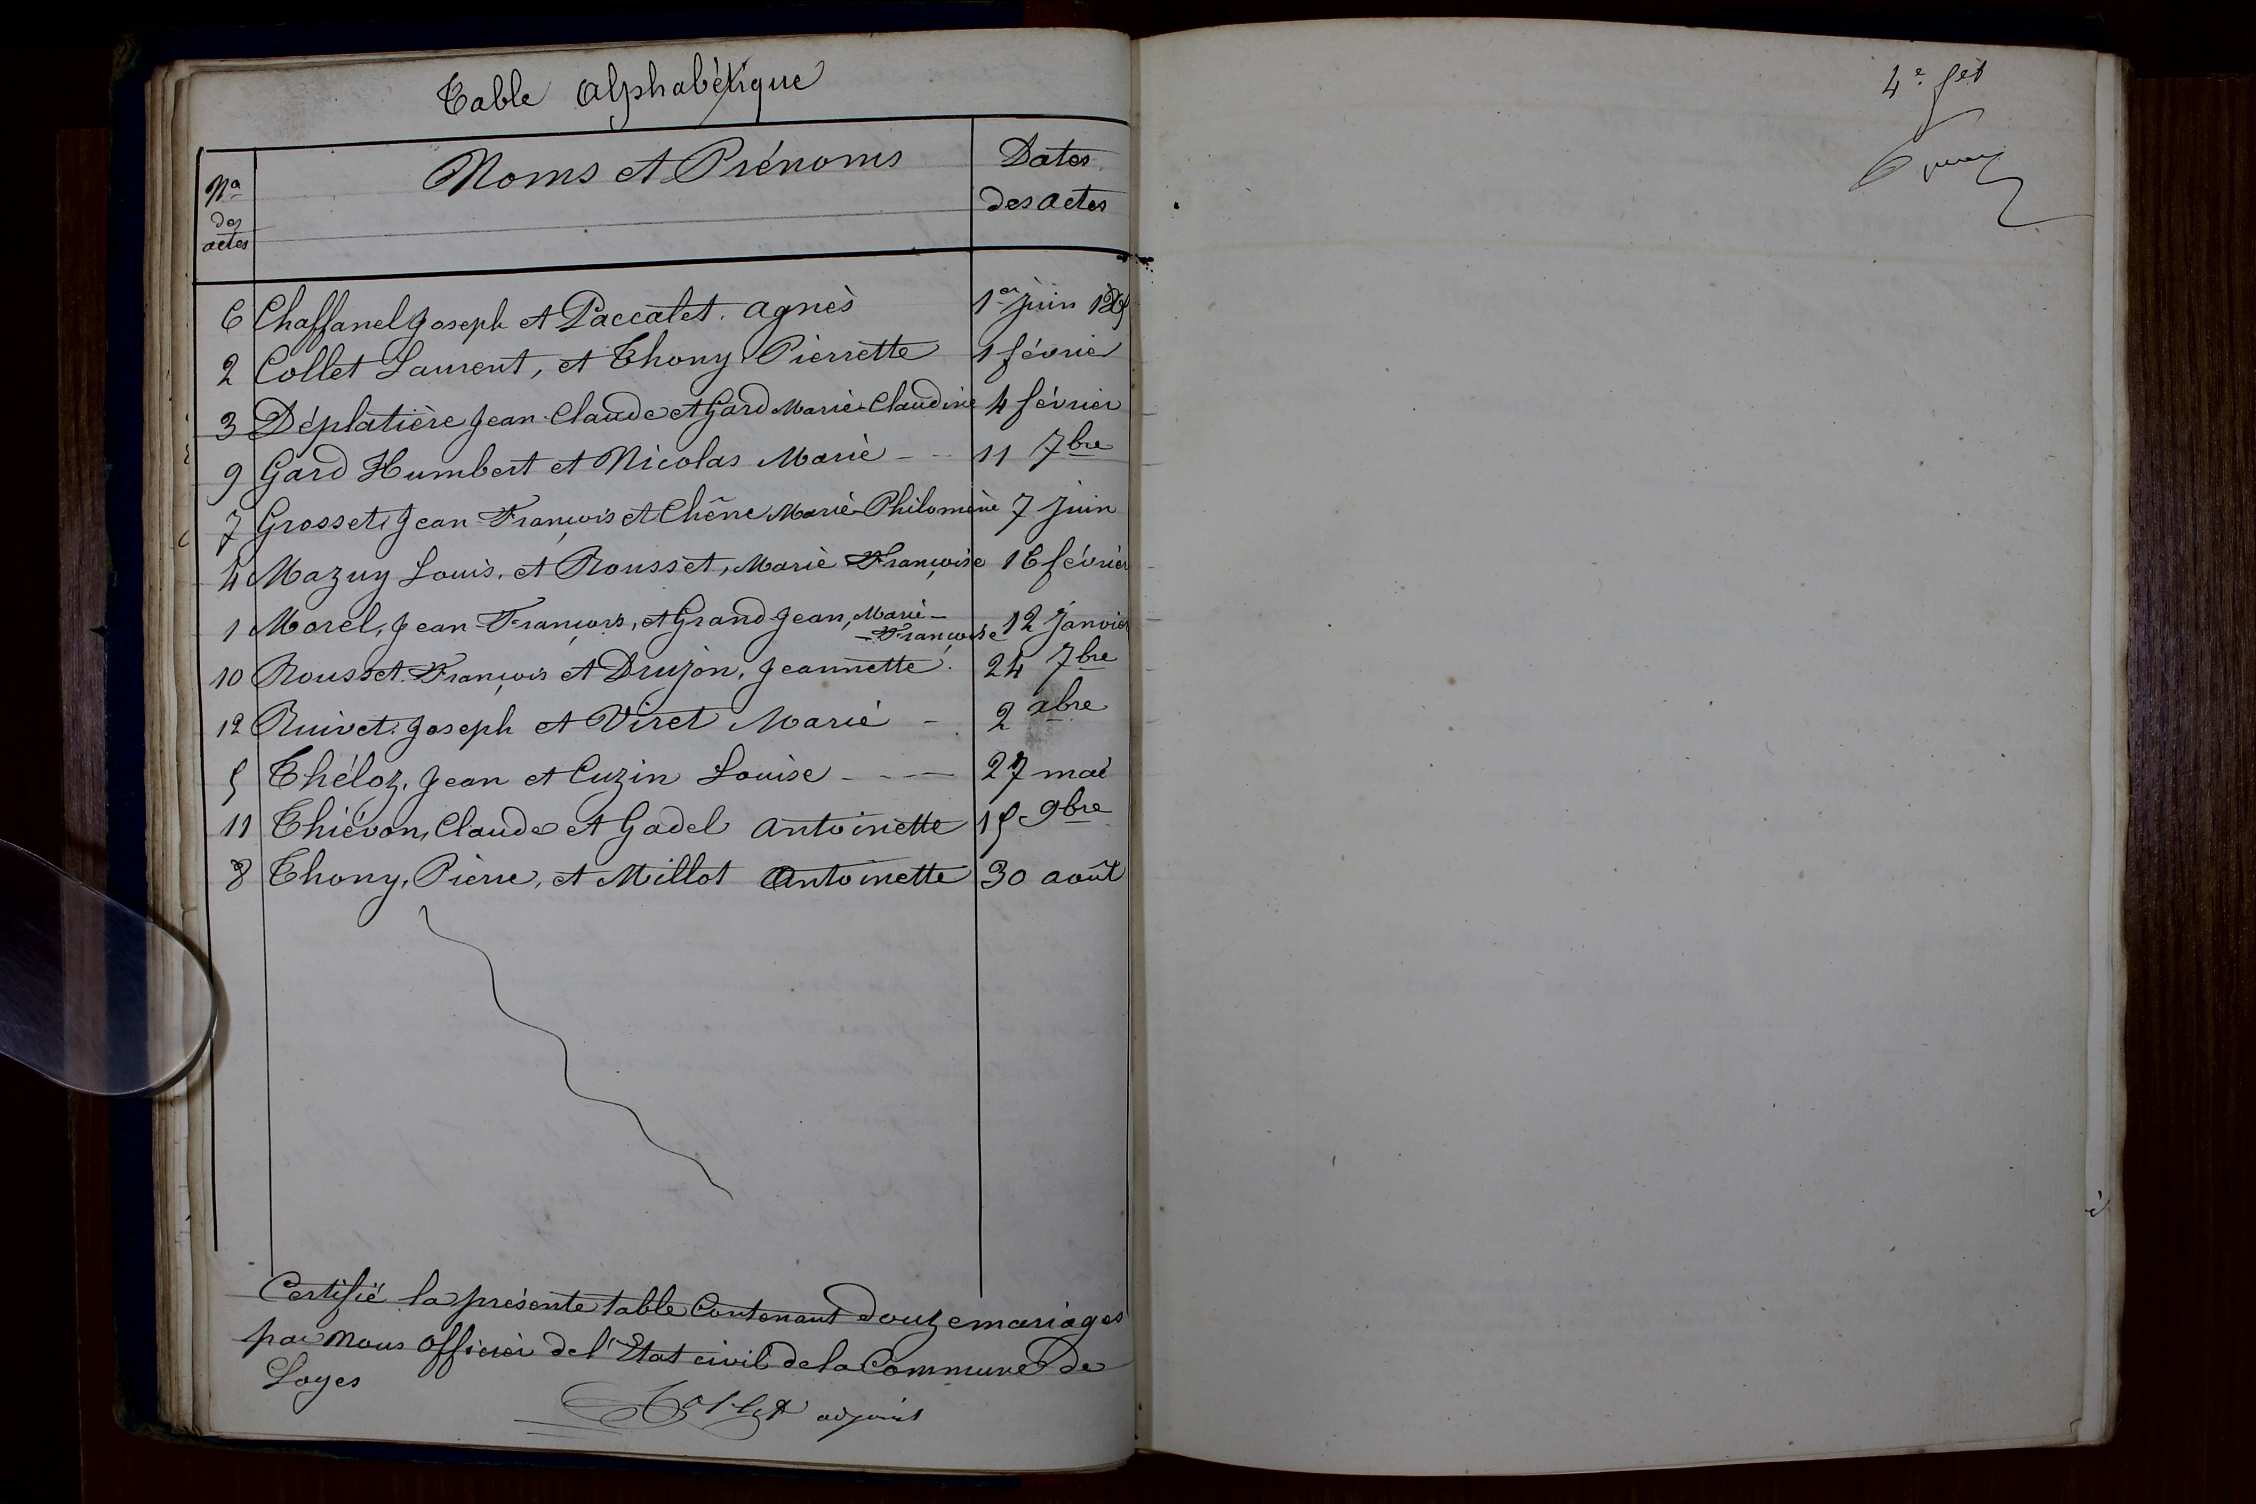 Table Alphabétique
Nos
des
actes
Noms et Prénoms
Dates
des actes
6 Chaffanel Joseph et Paccalet Agnès 1er juin
2 Collet Laurent, et Thony Pierrette 1 février
3 Déplatière Jean Claude et Gard Marie-Claudine 4 février
9 Gard Humbert et Nicolas Marie - - 11 7bre
7 Grosset, Jean François et Chêne Marie Philomène 7 juin
4 Mazuy Louis, et Rousset, Marie Françoise 16 février
1 Morel, Jean-François, et Grand-Jean, Marie- 12 janvier
-Françoise
10 Rousset François et Drujon, Jeannette. 24 7bre
12 Ruivet Joseph et Viret Marie - 2 xbre
5 Théloz, Jean et Cuzin Louise - - - - 27 mai
11 Thiévon, Claude et Gadel Antoinette 15 9bre
8 Thony, Pierre, et Millot Antoinette 30 août
Certifié la présente table Contenant douze mariages
par Nous Officier de l'Etat civil de la Commune de
Loyes
Collet adjoint
4e